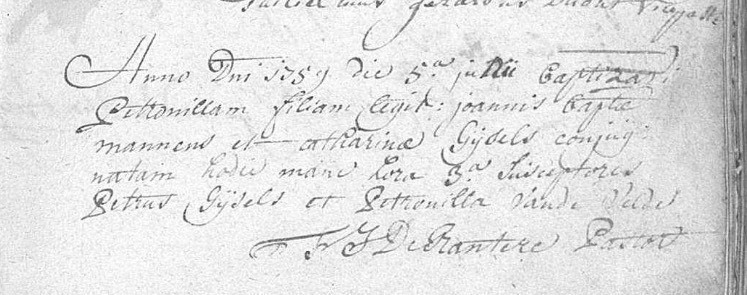 gerardus
Anno Dni 1759 die 5.a julii baptizavi
Petronillam filiam legit: joannis bapt̄æ
mannens et catharinæ Gijsels conjug
natam hodie mane hora 3.a Susceptores
Petrus Gijsels et Petronilla Vande Velde
Pastor